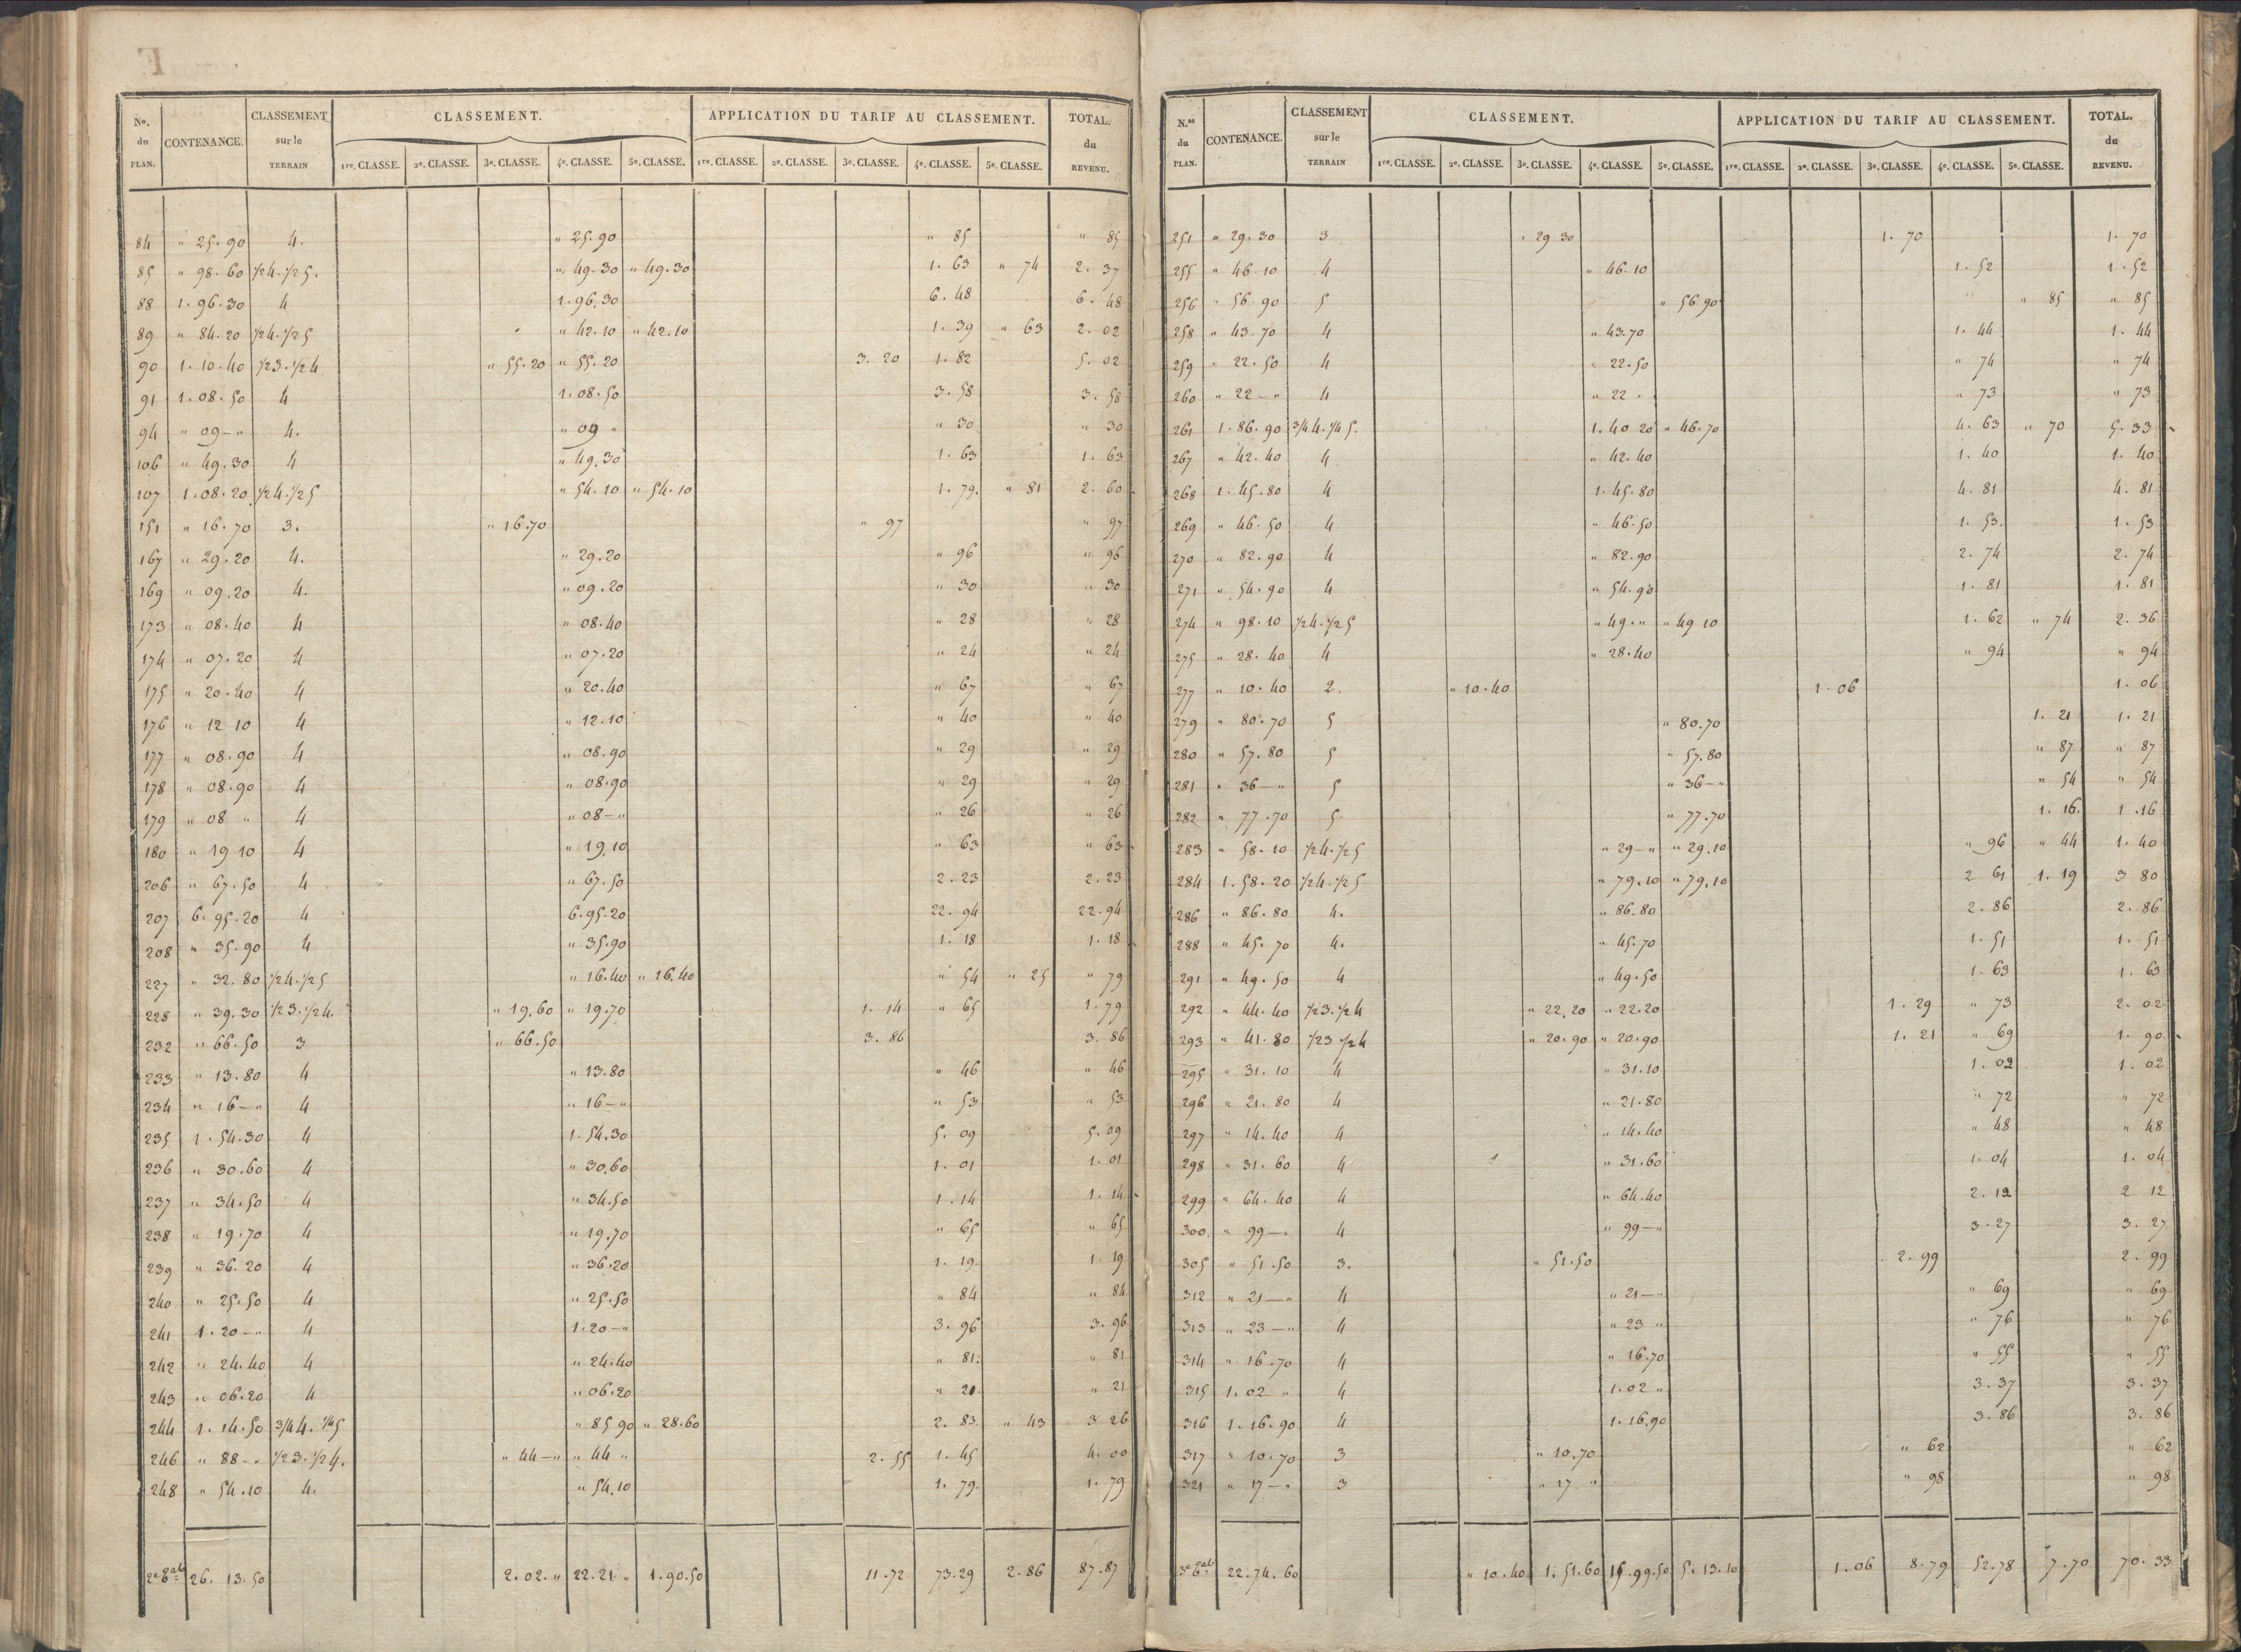 No. du PLAN. CONTENANCE. CLASSEMENT sur le TERRAIN CLASSEMENT. APPLICATION DU TARIF AU CLASSEMENT. TOTAL. du REVENU.
1re. CLASSE. 2e. CLASSE. 3e. CLASSE. 4e. CLASSE. 5e. CLASSE. 1re. CLASSE. 2e. CLASSE. 3e. CLASSE. 4e. CLASSE. 5e. CLASSE.
84 " 25.90 4. " 25.90 " 85 " 85
85 " 98.60 1/2 4. 1/2 5. " 49.30 " 49.30 1. 63 " 74 2. 37
88 1.96.30 4 1.96.30 6. 48 6. 48
89 " 84.20 1/2 4. 1/2 5 " 42.10 " 42.10 1. 39 " 63 2. 02
90 1.10.40 1/2 3. 1/2 4 " 55.20 " 55.20 3. 20 1. 82 5. 02
91 1.08.50 4 1.08.50 3. 58 3. 58
94 " 09–" 4. " 09 " " 30 " 30
106 " 49.30 4 " 49.30 1. 63 1. 63
107 1.08.20 1/2 4. 1/2 5 " 54.10 " 54.10 1. 79. " 81 2. 60
151 " 16.70 3. " 16.70 " 97 " 97
167 " 29.20 4. " 29.20 " 96 " 96
169 " 09.20 4. " 09.20 " 30 " 30
173 " 08.40 4 " 08.40 " 28 " 28
174 " 07.20 4 " 07.20 " 24 " 24
175 " 20.40 4 " 20.40 " 67 " 67
176 " 12 10 4 " 12.10 " 40 " 40
177 " 08.90 4 " 08.90 " 29 " 29
178 " 08.90 4 " 08.90 " 29 " 29
179 " 08 " 4 " 08–" " 26 " 26
180 " 19 10 4 " 19.10 " 63 " 63
206 " 67.50 4 " 67.50 2. 23 2. 23
207 6. 95.20 4 6.95.20 22. 94 22.94
208 " 35.90 4 " 35.90 1. 18 1. 18
227 " 32.80 1/2 4. 1/2 5 " 16.40 " 16.40 " 54 " 25 " 79
228 " 39.30 1/2 3. 1/2 4. " 19.60 " 19.70 1. 14 " 65 1. 79
232 " 66.50 3 " 66.50 3. 86 3. 86
233 " 13.80 4 " 13.80 " 46 " 46
234 " 16–" 4 " 16–" " 53 " 53
235 1.54.30 4 1.54.30 5. 09 5. 09
236 " 30.60 4 " 30.60 1. 01 1. 01
237 " 34.50 4 " 34.50 1. 14 1. 14
238 " 19.70 4 " 19.70 " 65 " 65
239 " 36.20 4 " 36.20 1. 19. 1. 19
240 " 25.50 4 " 25.50 " 84 " 84
241 1.20–" 4 1.20–" 3. 96 3. 96
242 " 24.40 4 " 24.40 " 81. " 81
243 " 06.20 4 " 06.20 " 21. " 21
244 1. 14.50 3/4 4. 1/4 5 " 85 90 " 28.60 2. 83. " 43 3 26
246 " 88–" 1/2 3. 1/2 4. " 44–" " 44 " 2. 55 1. 45 4. 00
248 " 54.10 4. " 54.10 1. 79. 1. 79
26. 13.50 2.02. " 22.21 " 1.90.50 11.72 73.29 2.86 87.87
N.os du PLAN. CONTENANCE. CLASSEMENT sur le TERRAIN CLASSEMENT. APPLICATION DU TARIF AU CLASSEMENT. TOTAL. du REVENU.
1re. CLASSE. 2e. CLASSE. 3e. CLASSE. 4e. CLASSE. 5e. CLASSE. 1re. CLASSE. 2e. CLASSE. 3e. CLASSE. 4e. CLASSE. 5e. CLASSE.
251 " 29.30 3 " 29 30 1. 70 1. 70
255 " 46 10 4 " 46.10 1. 52 1. 52
256 " 56 90 5 " 56 90 " 85 " 85
258 " 43.70 4 " 43.70 1. 44 1. 44
259 " 22.50 4 " 22.50 " 74 " 74
260 " 22–" 4 " 22 " " 73 " 73
261 1.86.90 3/4 4. 1/4 5. 1.40 20 " 46.70 4. 63 " 70 5. 33
267 " 42.40 4 " 42.40 1. 40 1. 40
268 1.45.80 4 1.45.80 4. 81 4. 81
269 " 46.50 4 " 46.50 1. 53. 1. 53
270 " 82.90 4 " 82.90 2. 74 2. 74
271 " 54.90 4 " 54.90 1. 81 1. 81
274 " 98.10 1/2 4. 1/2 5 " 49. " " 49 10 1. 62 " 74 2. 36
275 " 28.40 4 " 28.40 " 94 " 94
277 " 10.40 2. " 10.40 1. 06 1. 06
279 " 80.70 5 " 80.70 1. 21 1. 21
280 " 57.80 5 " 57.80 " 87 " 87
281 " 36–" 5 " 36–" " 54 " 54
282 " 77.70 5. " 77.70 1. 16. 1 .16
283 " 58.10 1/2 4. 1/2 5 " 29–" " 29.10 " 96 " 44 1. 40
284 1.58.20 1/2 4. 1/2 5 " 79.10 " 79.10 2 61 1. 19 3 80
286 " 86.80 4. " 86.80 2. 86 2. 86
288 " 45.70 4. " 45.70 1. 51 1. 51
291 " 49.50 4 " 49.50 1. 63 1. 63
292 " 44.40 1/2 3. 1/2 4 " 22.20 " 22.20 1. 29 " 73 2. 02
293 " 41.80 1/2 3 1/2 4 " 20.90 " 20.90 1. 21 " 69 1. 90
295 " 31.10 4 " 31.10 1. 02 1. 02
296 " 21.80 4 " 21.80 " 72 " 72
297 " 14.40 4 " 14.40 " 48 " 48
298 " 31.60 4 " 31.60 1. 04 1. 04
299 " 64.40 4 " 64.40 2. 12 2 12
300 " 99–" 4 " 99–" 3. 27 3. 27
305 " 51.50 3. " 51.50 2. 99 2. 99
312 " 21–" 4 " 21–" " 69 " 69
313 " 23–" 4 " 23 " " 76 " 76
314 " 16.70 4 " 16.70 " 55 " 55
315 1.02 " 4 1.02 " 3. 37 3. 37
316 1.16.90 4 1.16.90 3. 86 3. 86
317 " 10.70 3 " 10.70 " 62 " 62
321 " 17–" 3 " 17 " " 98 " 98
22.74.60 " 10.40 1.51.60 15.99.50 5.13.10 1.06 8.79 52.78 7.70 70.33